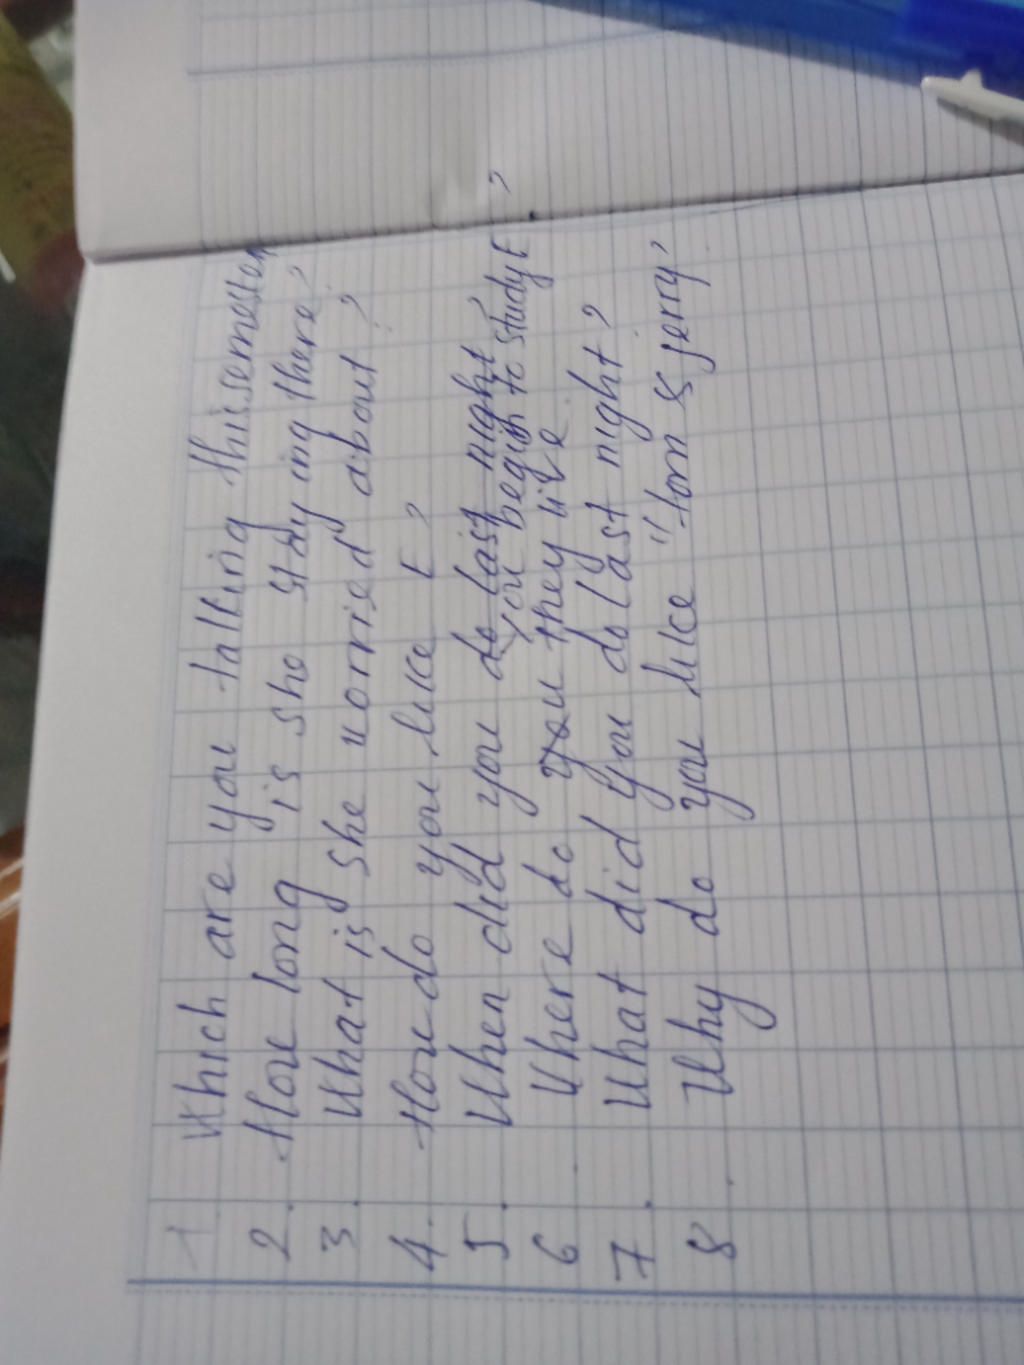 1 Which are you talking this semester
2. How long is she staying there?
3. What is she worried about?
4. How do you like E?
5. When did you do last night? you begin to study E?
6. Where do you they live.
7. What did you do last night?
8. Why do you like "tom & jerry?